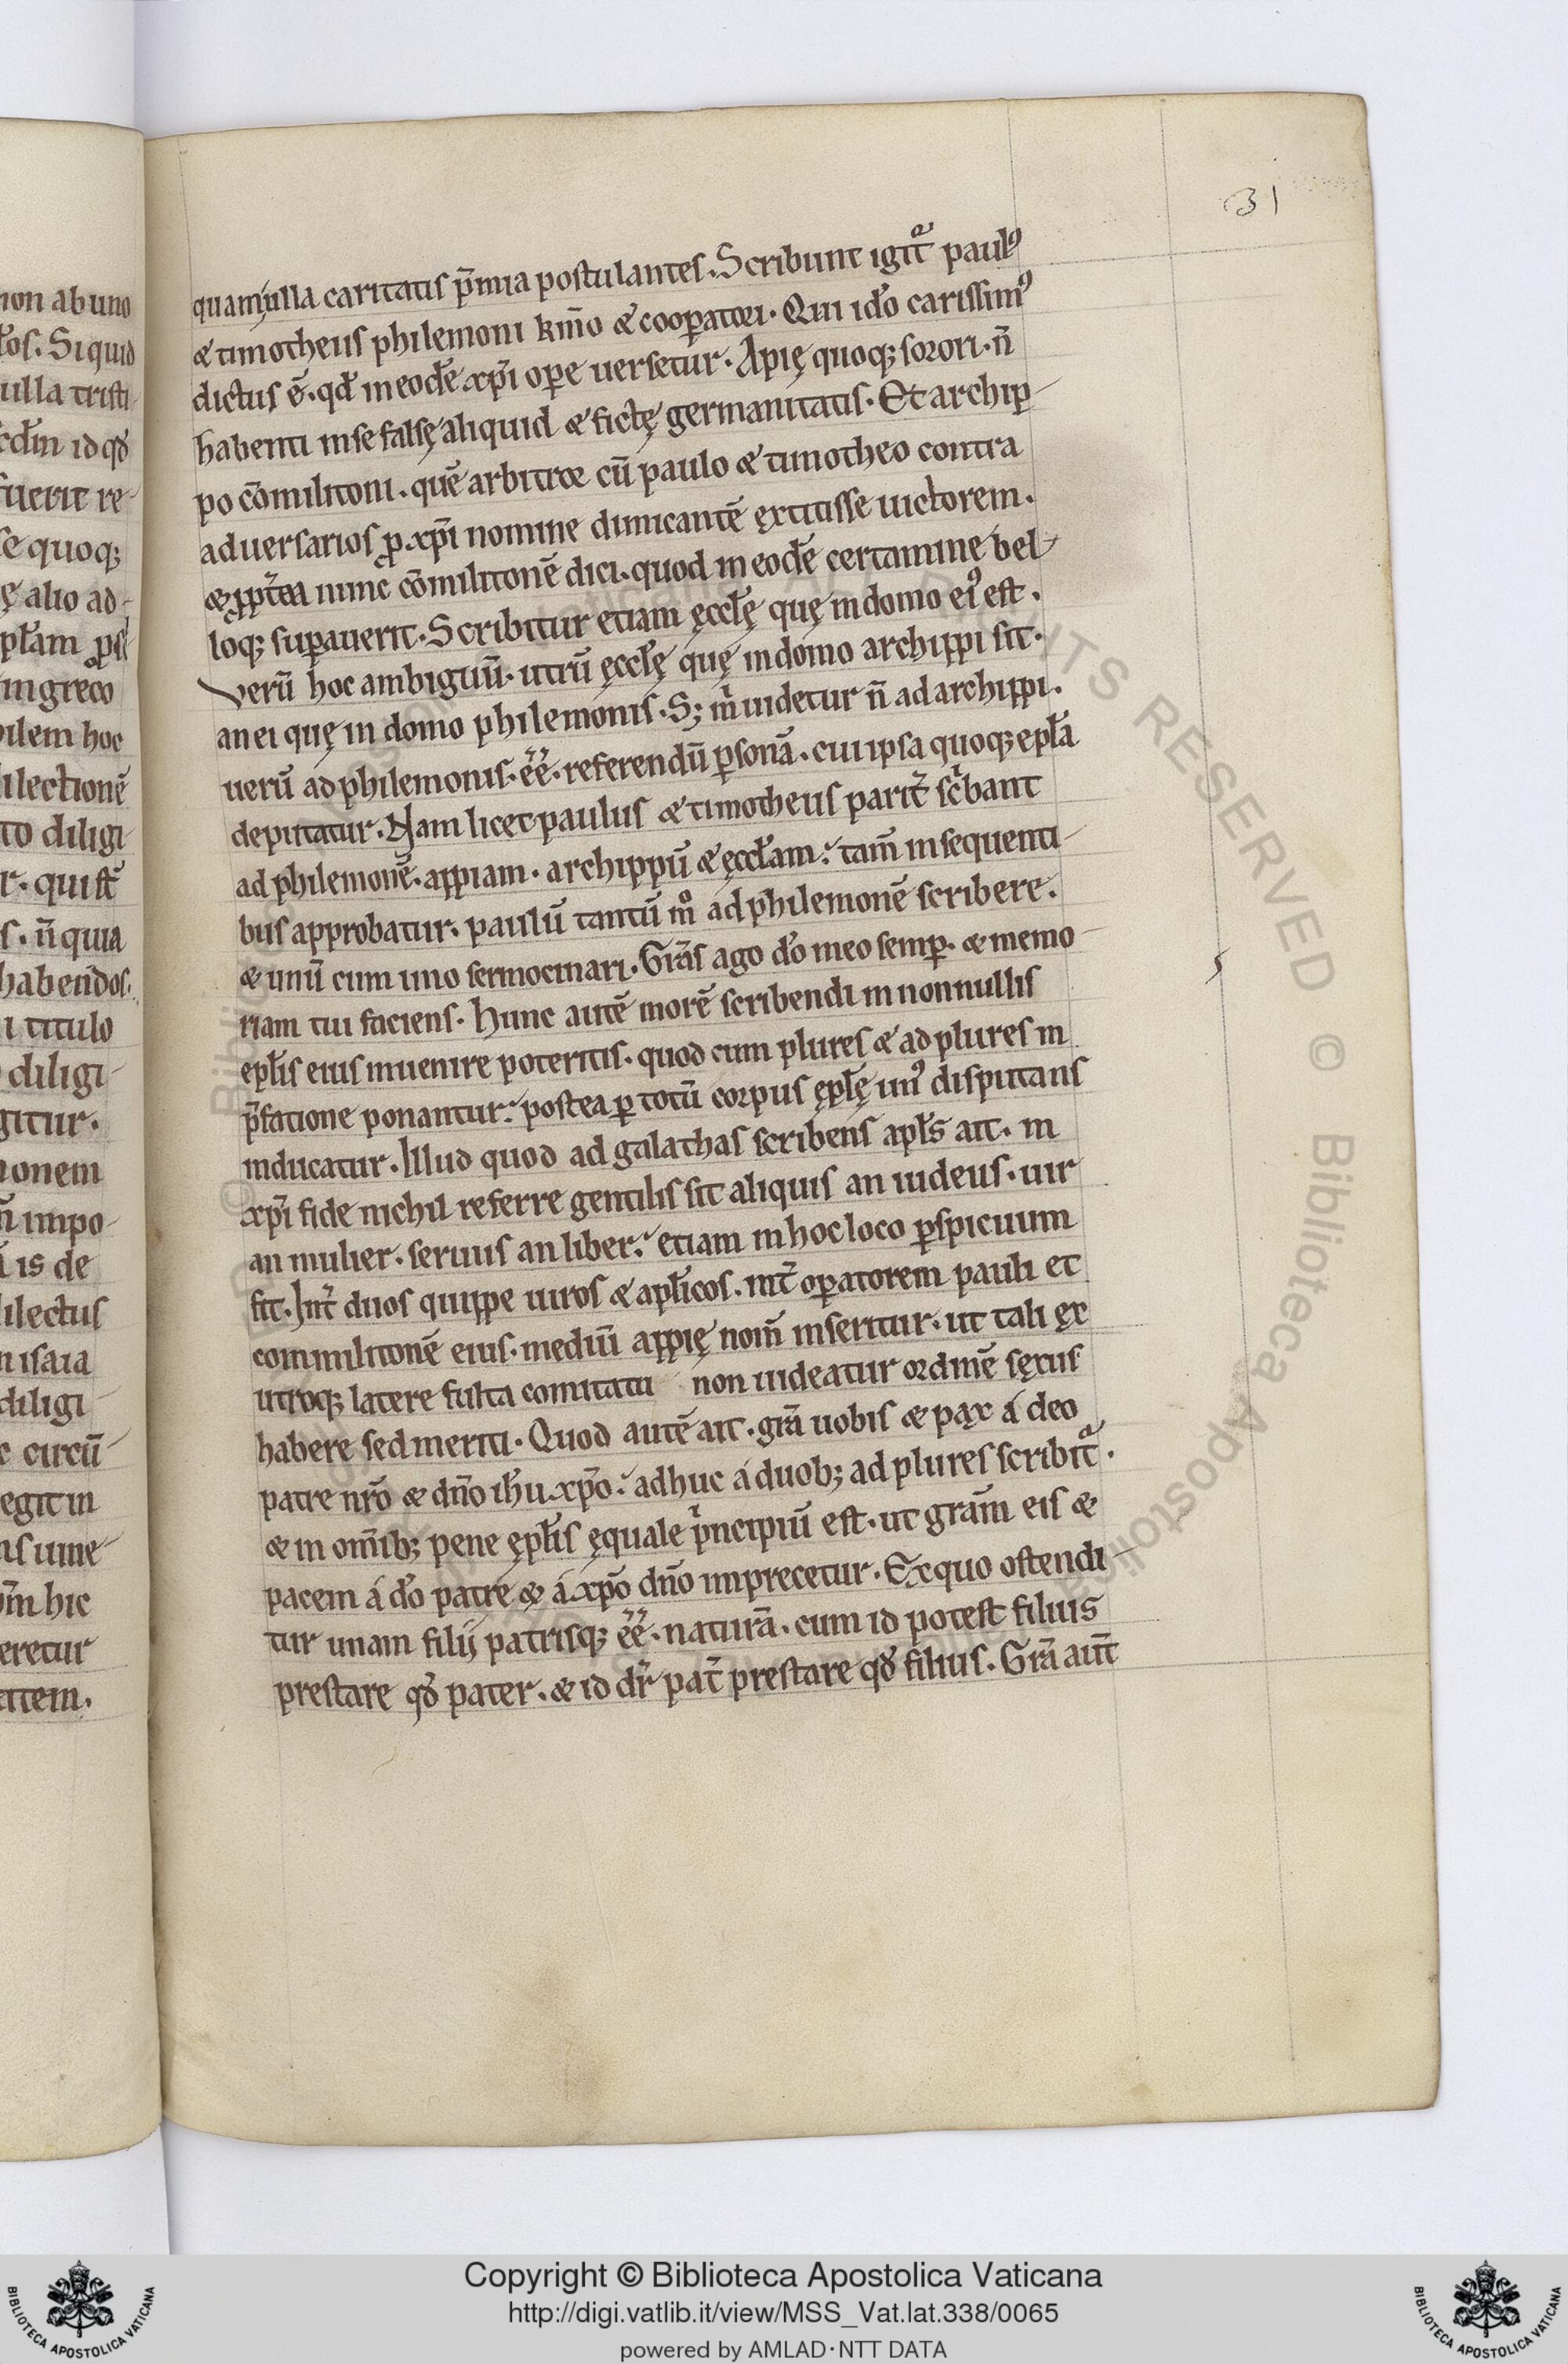 31
quam ulla caritatis p̄mia postulantes. Scribunt igit᷑ paulꝰ
& timotheus philemoni km̄o & coop̱atori. Qui ido̅ carissimꝰ
dictus ē. qd̄ in eodē xp̄i ope̱ uersetur. Apię quoq; sorori. n̄
habenti in se falsę aliquid & fictę germanitatis. Et archip
po cōmilitoni. quē arbitror cū paulo & timotheo contra
aduersarios ꝓ xp̄i nomine dimicantē extitisse uictorem.
& ꝓpt̄ea nunc cōmilitonē dici. quod in eodē certamine bel
loq; sup̱auerit. Scribitur etiam ęccłę quę in domo eiꝰ est.
Verū hoc ambiguū. utrū ęccłę quę in domo archippi sit.
an ei quę in domo philemonis. S; m̍ uidetur n̄ ad archippi.
uerū ad philemonis. ēē. referendū p̱sonā. cui ipsa quoq; epła
deputatur. Nam licet paulus & timotheus parit̄ sc̍bant
ad philemonē. appiam. archippū & ęccłam. tam̄ in sequenti
bus approbatur. paulū tantū m̊ ad philemonē scribere.
& unū cum uno sermocinari. Grās ago do̅ meo semp̱. & memo
riam tui faciens. Hunc autē morē scribendi in nonnullis
epłis eius inuenire poteritis. quod cum plures & ad plures in
p̄fatione ponantur. postea p̱ totū corpus ępłę unꝰ disputans
inducatur. Illud quod ad galathas scribens apłs ait. in
xp̄i fide nichil referre gentilis sit aliquis an iudeus. uir
an mulier. seruus an liber. etiam in hoc loco p̱spicuum
fit. Int̄ duos quippe uiros & apłicos. int̄ op̱atorem pauli et
commilitonē eius. mediū appię nom̄ inseritur. ut tali ex
utroq; latere fulta comitatu non uideatur ordinē sexus
habere sed meriti. Quod autē ait. grā uobis & pax á deo
patre nr̄o & dn̄o ih̄u xp̄o. adhuc á duob; ad plures scribit᷑.
& in om̄ib; pene ępłis ęquale p̍ncipiū est. ut gram̄ eis &
pacem á do̅ patre & á xp̄o dn̄o imprecetur. Ex quo ostendi
tur unam filij patrisq; ēē. naturā. cum id potest filius
prestare qđ pater. & id dr̄ pat̄ prestare qđ filius. Grā aut̄
Copyright © Biblioteca Apostolica Vaticana
http://digi.vatlib.it/view/MSS_Vat.lat.338/0065
powered by AMLAD·NTT DATA